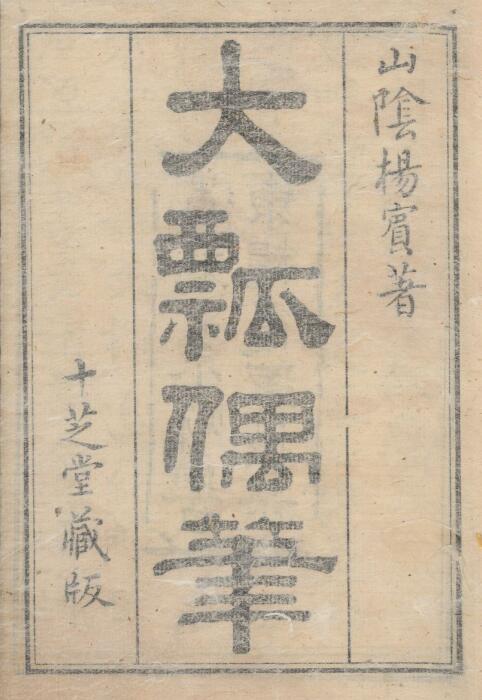 山陰楊賓著
大瓢偶筆
十芝堂藏版